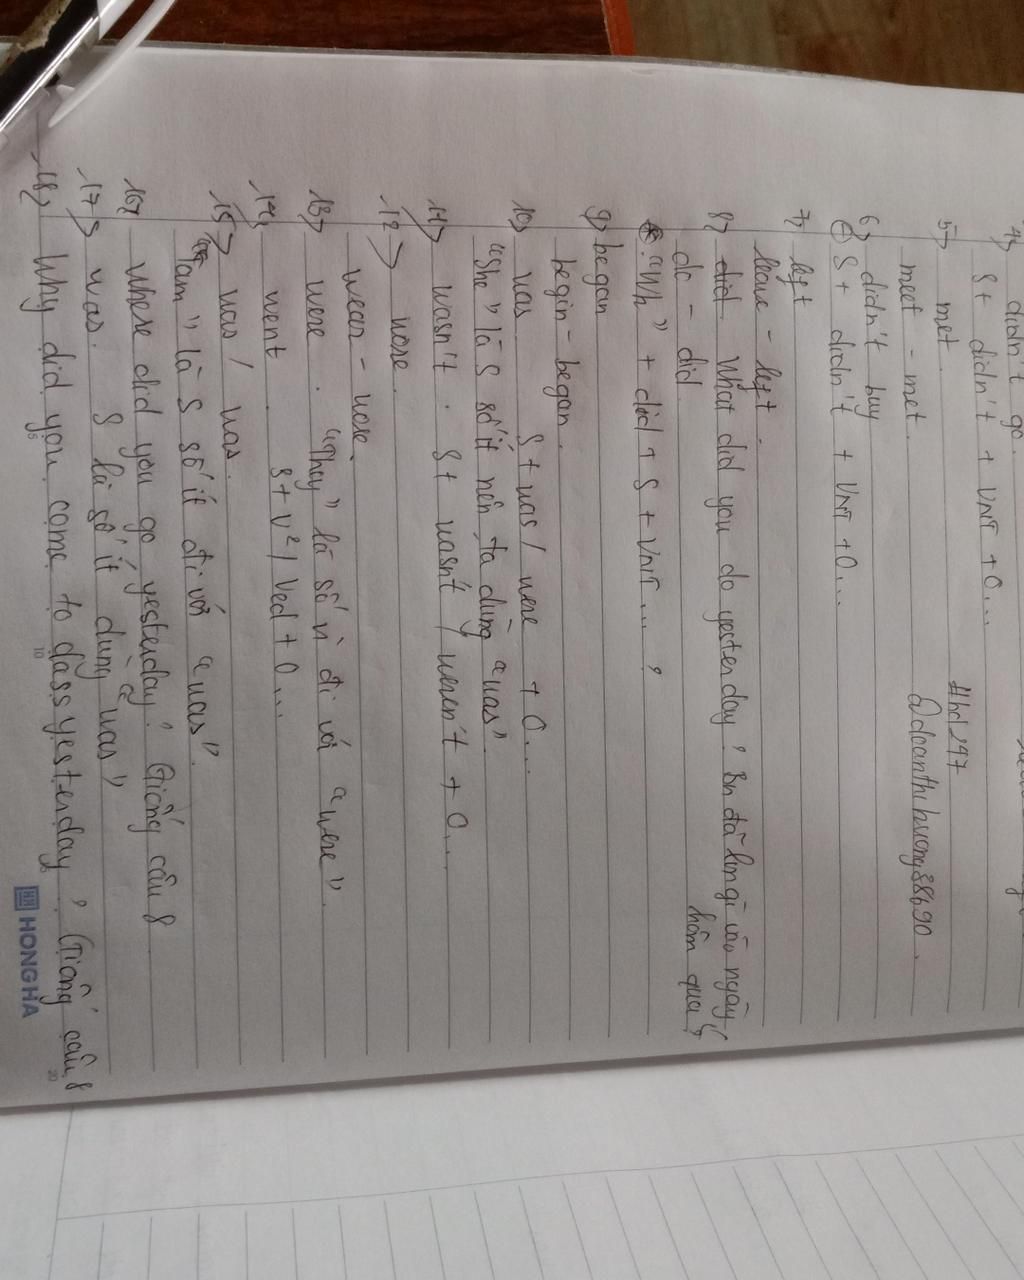 4) didn't go.
S + didn't + VNT + O...
5) met.
meet - met.
#hd247
@doanthihuong38690.
6) didn't buy
(-) S + didn't + VNT + O...
7) left
leave - left.
8) did. What did you do yesterday? Bn đã làm gì vào ngày hôm qua?
do - did.
"Wh" + did + S + VNT...?
9) began
begin - began.
10) was S + was / were + O...
"She" là S số ít nên ta dùng "was".
11) wasn't. S + wasn't / weren't + O...
12) wore.
wear - wore.
13) were. "They" là số n đi với "were".
14) went. S + V2 / Ved + O...
15) was / was.
"Tam" là S số ít đi với "was".
16) where did you go yesterday? Giống câu 8
17) was. S là số ít dùng "was"
18) Why did you come to class yesterday? Giống câu 8
HH HONG HA
5 10 20